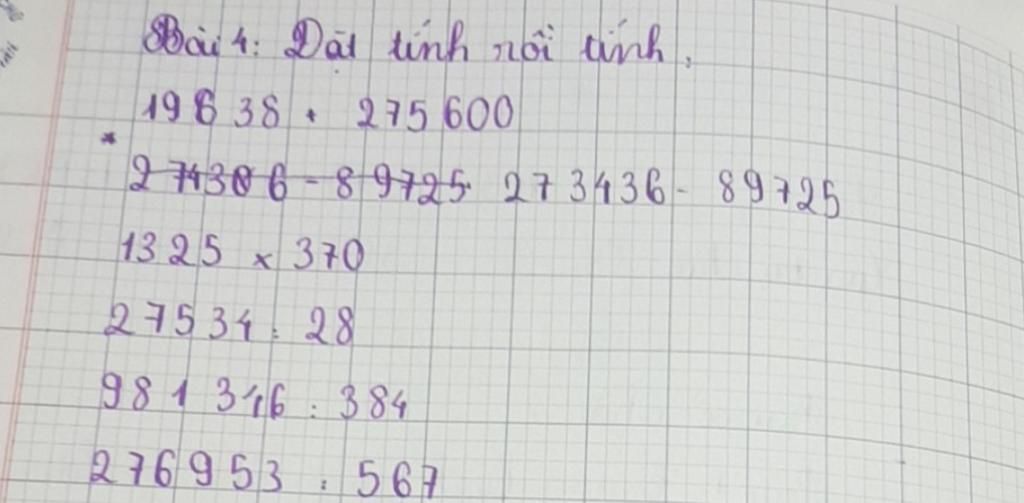 Bài 4: Đặt tính rồi tính.
19638 + 275600
274306 - 89725 273436 - 89725
1325 x 370
27534 : 28
981346 : 384
276953 : 567